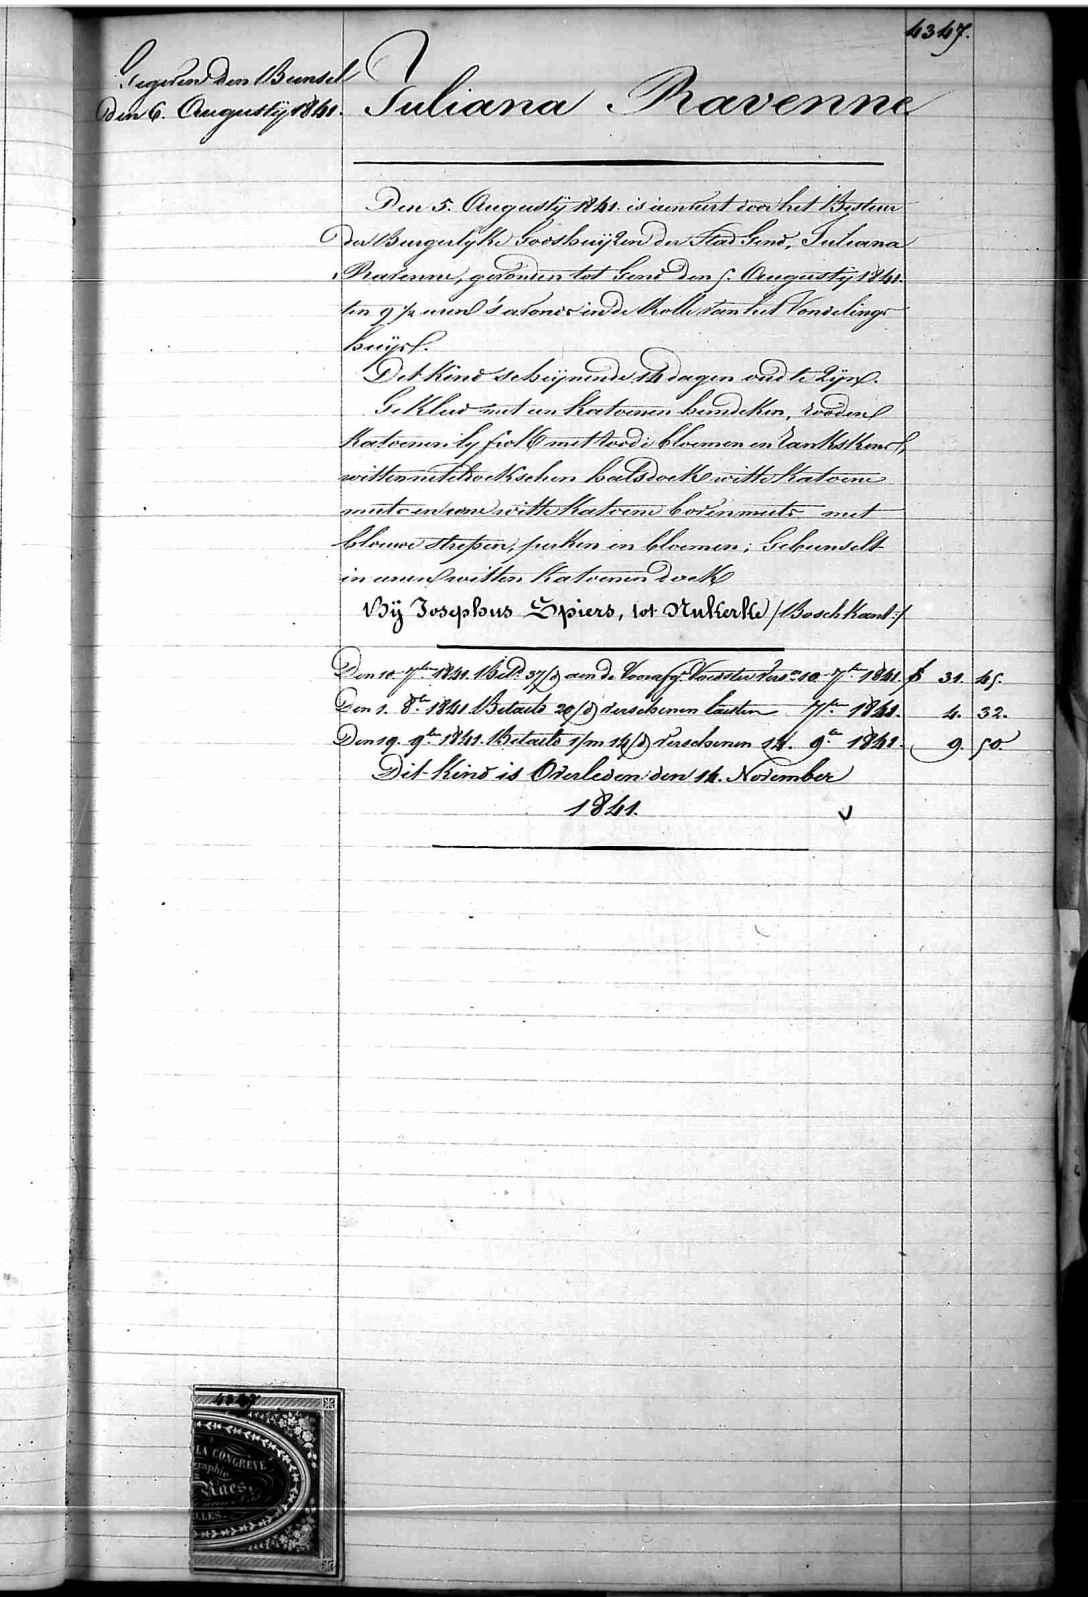 4347.
Gegeven den Bunsel
den 6. Augusty 1841.
Juliana Ravenne
Den 5. Augusty 1841. is aenveirt door het Bestuer
der Burgerlyke Godshuijzen der Stad Gend, Juliana
Ravenne, gevonden tot Gend den 5. Augusty 1841.
ten 9 ½ uren 's avonds in de Rolle van het Vondelings
huijs.
Dit Kind scheijnende 14 dagen oud te zijn.
Gekleed met een Katoenen hemdeken, rooden
Katoenen lyfrok met roode bloemen en Rankskens,
witten neteldoekschen halsdoek witte Katoene
muts en eene witte Katoene bovenmuts met
blouwe strepen, perken en bloemen; Gebunselt
in eenen witten Katoenen doek
Bij Josephus Spiers, tot Nukerke /Boschkant:/
Den 10. 7ber 1841. Betd. 37/d aen de Voorafg. Voedster Vers. 10. 7r 1841. f 31. 45.
Den 1. 8r 1841. Betaeld 20/d verschenen laesten 7r 1841. 4. 32.
Den 19. 9r 1841. Betaeld 1/m 14/d verschenen 14. 9r 1841. 9. 50
Dit Kind is Overleden den 14. November
1841.
4347
LA CONGRÈVE
graphie
Raes,
LLES.